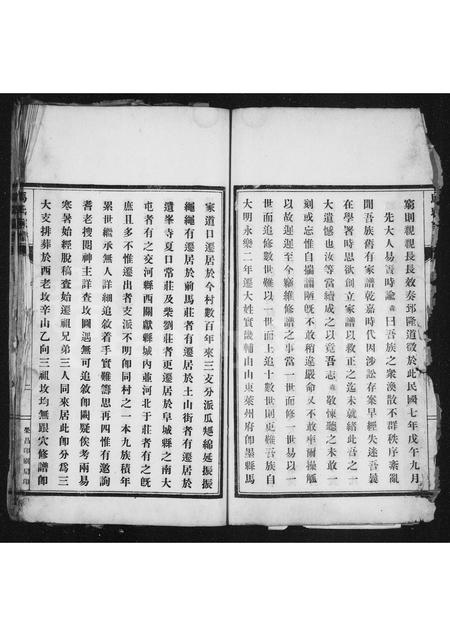 窮則親親長長效奏郅隆道微於此民國七年戊午九月
先大人易簀時諭森曰吾族之衆渙散不群秩序紊亂
聞吾族舊有家譜乾嘉時代因涉訟存案早經失迷吾曩
在學署時思欲創立家譜以救正之迄未就緒此吾之一
大遺憾也汝等當續成之以竟吾志森敬悚聽之未敢一
刻或忘惟自揣譾陋旣不敢稍違嚴命又不敢率爾操觚
以故遲遲至今竊維修譜之事當一世面修一世易以一
世而追修數世難以一世而上追十數世則更難吾族自
大明永樂二年遷大姓實畿輔由山東萊州府即墨縣馬
家道口遷居於今村數百年來三支分派瓜瓞綿延振振
繩繩有遷居於前馬莊者有遷居於土山街者有遷居於
遺峯寺夏口常莊及柴劉莊者更遷居於阜城縣之南大
屯者有之交河縣西關獻縣城內並河北于莊者有之旣
庶且多不惟遷出者支派不明卽同村之一本九族積年
累世繼承無人詳細追敘着手實難籌思再四惟有邀詢
耆老搜閱神主詳查坟圖遇無可追敘卽闕疑俟考兩易
寒暑始經脫稿查始遷祖兄弟三人同來居此卽分為三
大支排葬於西老坟辛山乙向三祖坟均無跟穴修譜卽
榮昌印刷局印